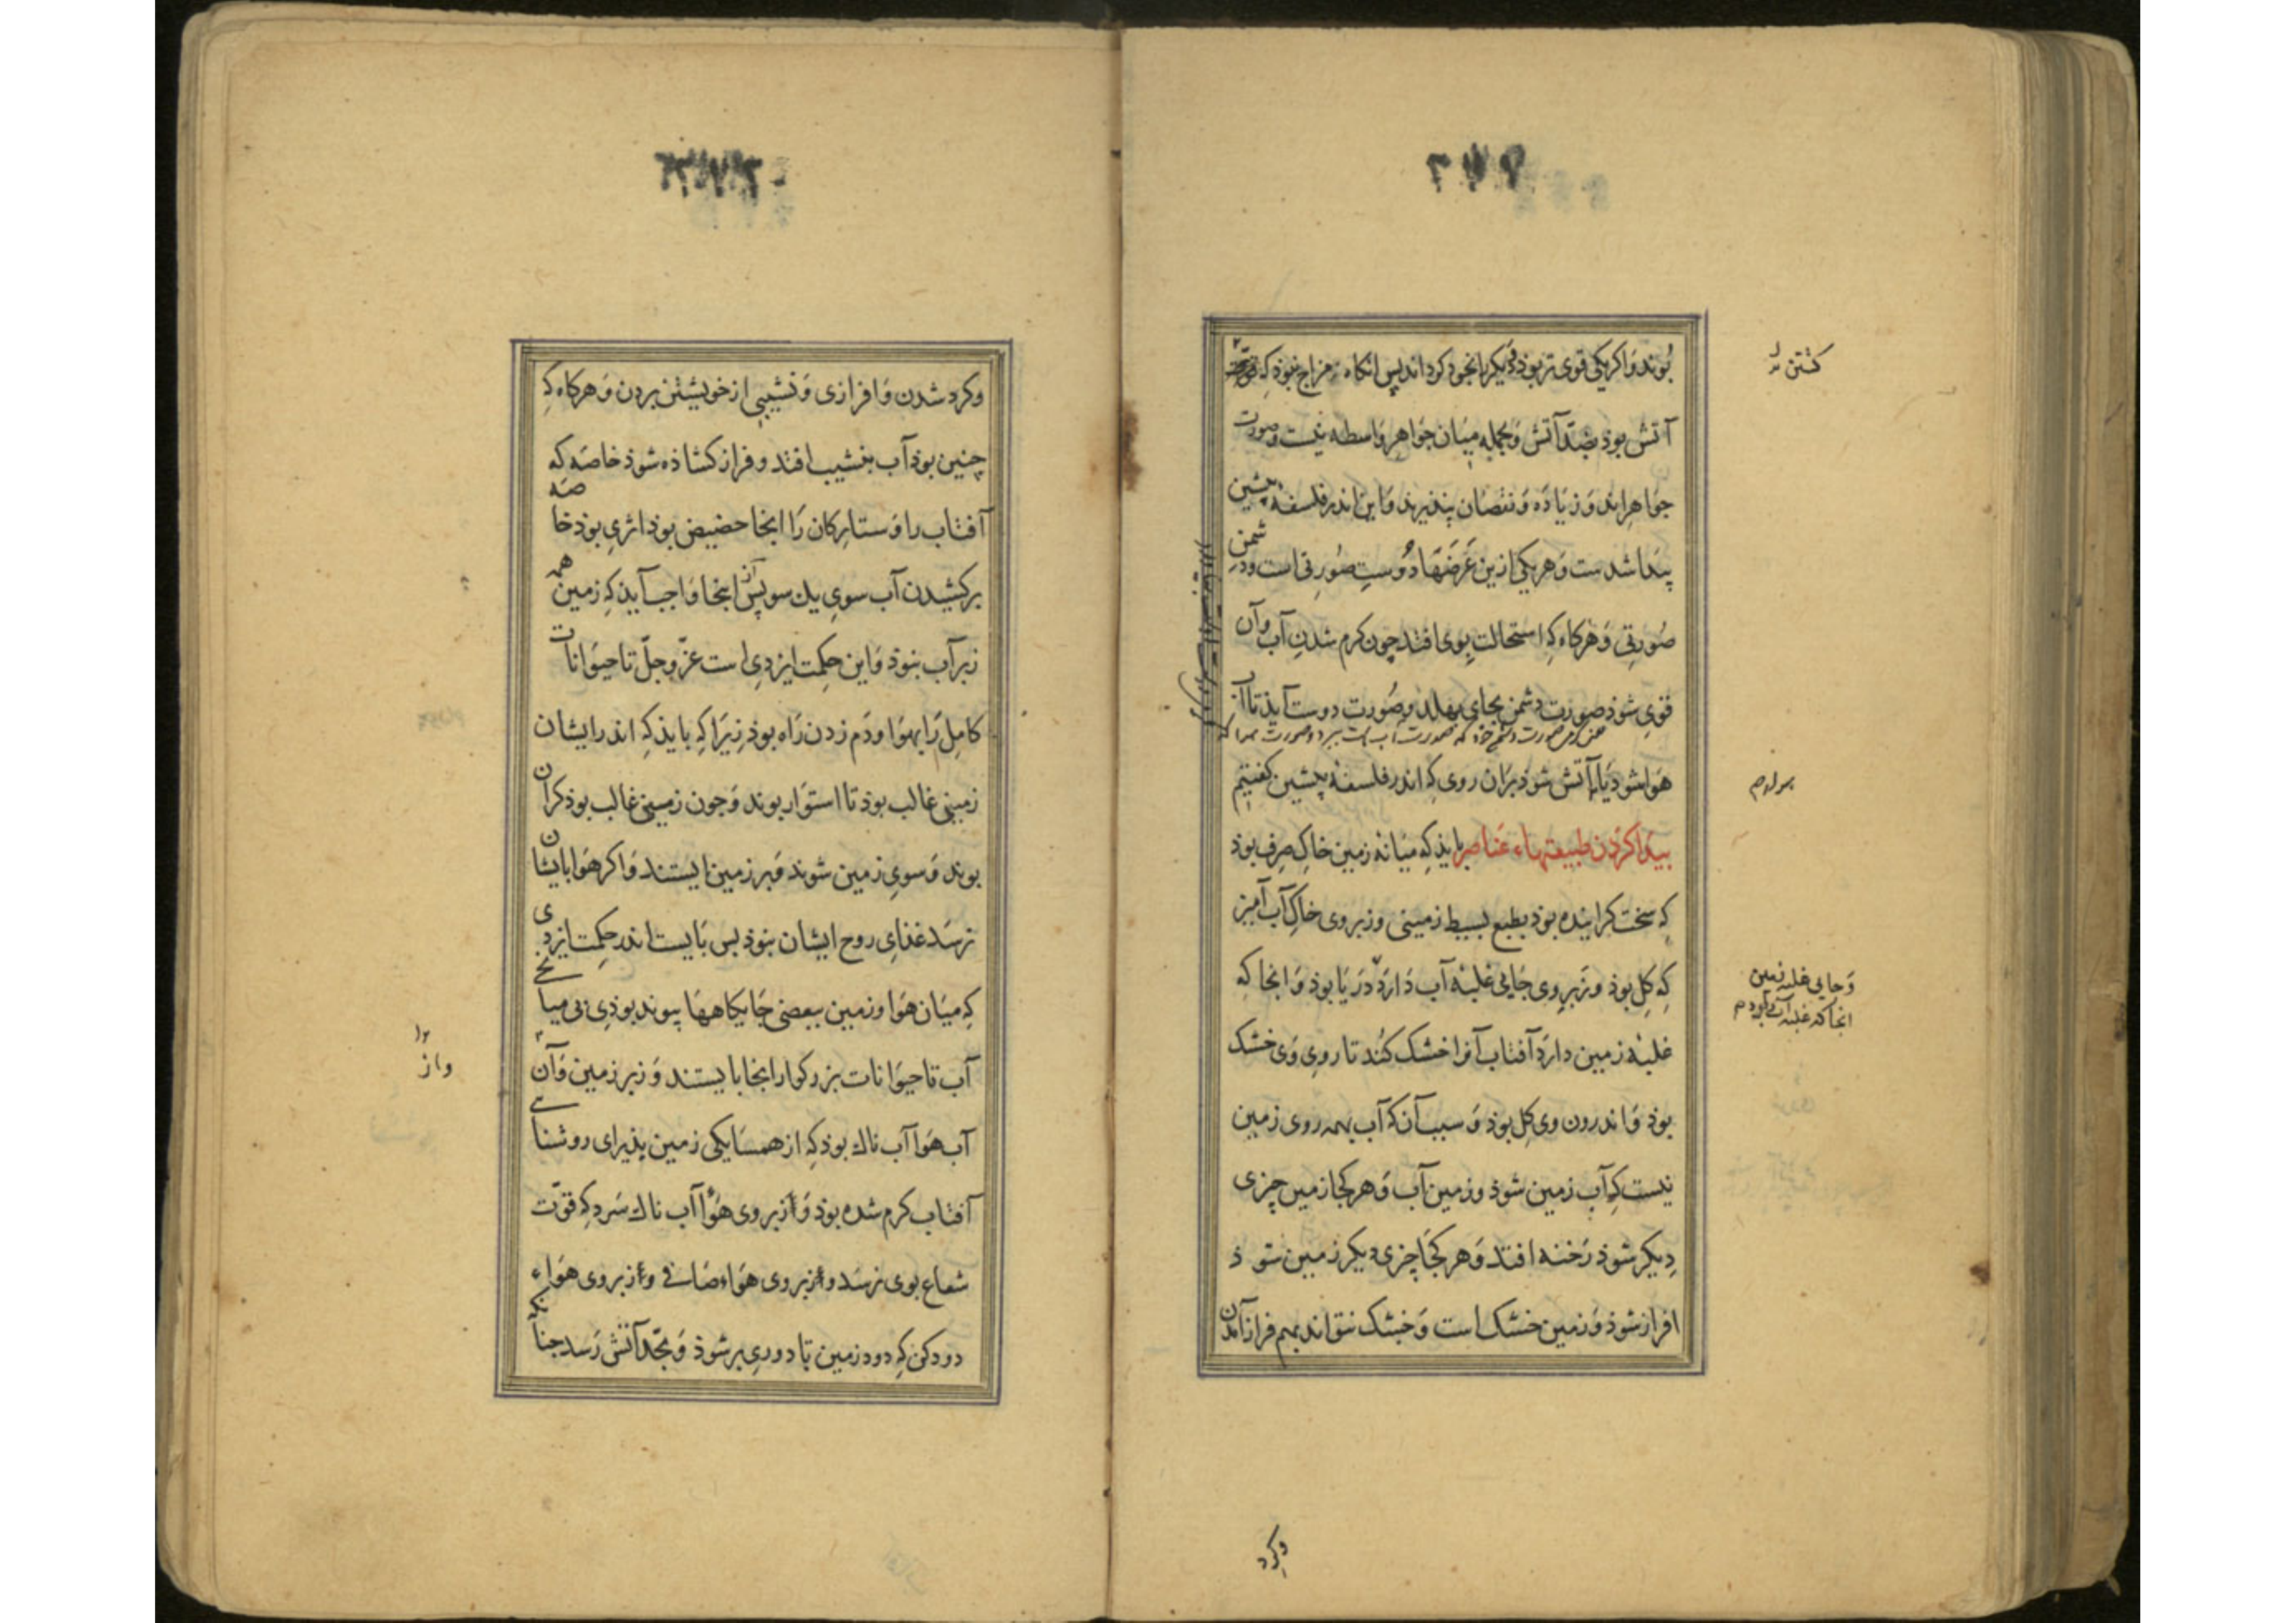 بُوند وَ اکر یکی قوی تر بوذ دیکر را بخود کرداند پس انکاه مزاج نبوذ کِه
آتش بوذ ضدّ آتش وَ بجمله مِیان جوَاهر وَاسطه نیست و صورت
جوَاهراند وَ زیَادَه وَ نقصَان پنذیرند وَ این اندر فلسفهٔ پیشین
پیَدا شدست وَ هریکی ازین عَرَضَهَا دُوستِ صُورتی است و دشمن
صُورتی وَ هرکاه کِه استحالت بوی افتد چون کرم شدن آب وآن
قوی شوذ صورت دشمن بجای بهلد و صُورت دوست آیذ تا آب
هوَا شوذ یَا آتش شوذ برَان روی کِه اندر فلسفهٔ پیشین کفتیم
پیَدا کردَن طبیعتهاء عَناصر بایذ کِه میَانهٔ زمین خاکِ صِرف بوذ
کِه سخت کراینده بوذ بطبع بسیط زمینی و زبر وی خاکِ آب آمیز
کِه کِل بوذ و زَبر وی جَایی غلبهٔ آب دَارَد دَریَا بوذ وَ انجا کِه
غلبهٔ زمین دارَد آفتاب آنرا خشک کنُد تا روی وَی خشک
بوذ وَ اندرون وی کِل بوذ وَ سبب آن که آب بهمه روی زمین
نیست کِه آب زمین شوذ و زمین آب وَ هر کجا زمین چزی
دِیکر شوذ رَخنه افتد وَ هر کجَا چزی دیکر زمین شوذ
افراز شوذ وَ زمین خشک است وَ خشک نتواند بهم فراز آمدن
کشتن
وَ جایی غلبه زمین
انجا که غلبه آب دارد م
وکرد
وکرد شدن وَ افرازی وَ نشیبی از خویشتن بردن وَ هرکاه کِه
چنین بوذ آب بنشیب افتد و فراز کشاذه شوذ خاصَه که
آفتاب را وَ ستارکان رَا انجا حضیض بوذ اثری بوذ خاصَه
برکشیدن آب سوی یک سو پس از انجا وَاجب آیذ کِه زمین همه
زبر آب بنوذ وَ این حِکمت ایزدی است عزّ و جلّ تا حیوَانات
کامِل رَا بهوَا و دَم زدن رَاه بوذ زیَرا کِه بایذ کِه اندر ایشان
زمینی غالب بوذ تا استوَار بوند وَ جون زمینی غالب بوذ کران
بوند وَ سوی زمین شوند وَ بر زمین ایستند وَ اکر هوَا بایشان
نرسَد غذای روح ایشان بنوذ بس بَایست اندر حِکمت ایزدی
کِه میَان هوَا و زمین ببعضی جَایکاهها پیوند بوذی بی میانجی
آب تا حیوَانات بزرکوار انجا بایستند وَ زبر زمین وَ آن
آب هوَا آب ناک بوذ کِه از همسَایکی زمین پذیرای روشنایی
آفتاب کرم شده بوذ وَ از بر وی هوَا آب ناک سَرد کِه قوّت
شعاع بوی نرسَد و از بر وی هوَاء صَافی و از بر وی هوَاء
دود کن کِه دود زمین تا دوری بر شوذ وَ بحّد آتش رَسد جنانکه
و از